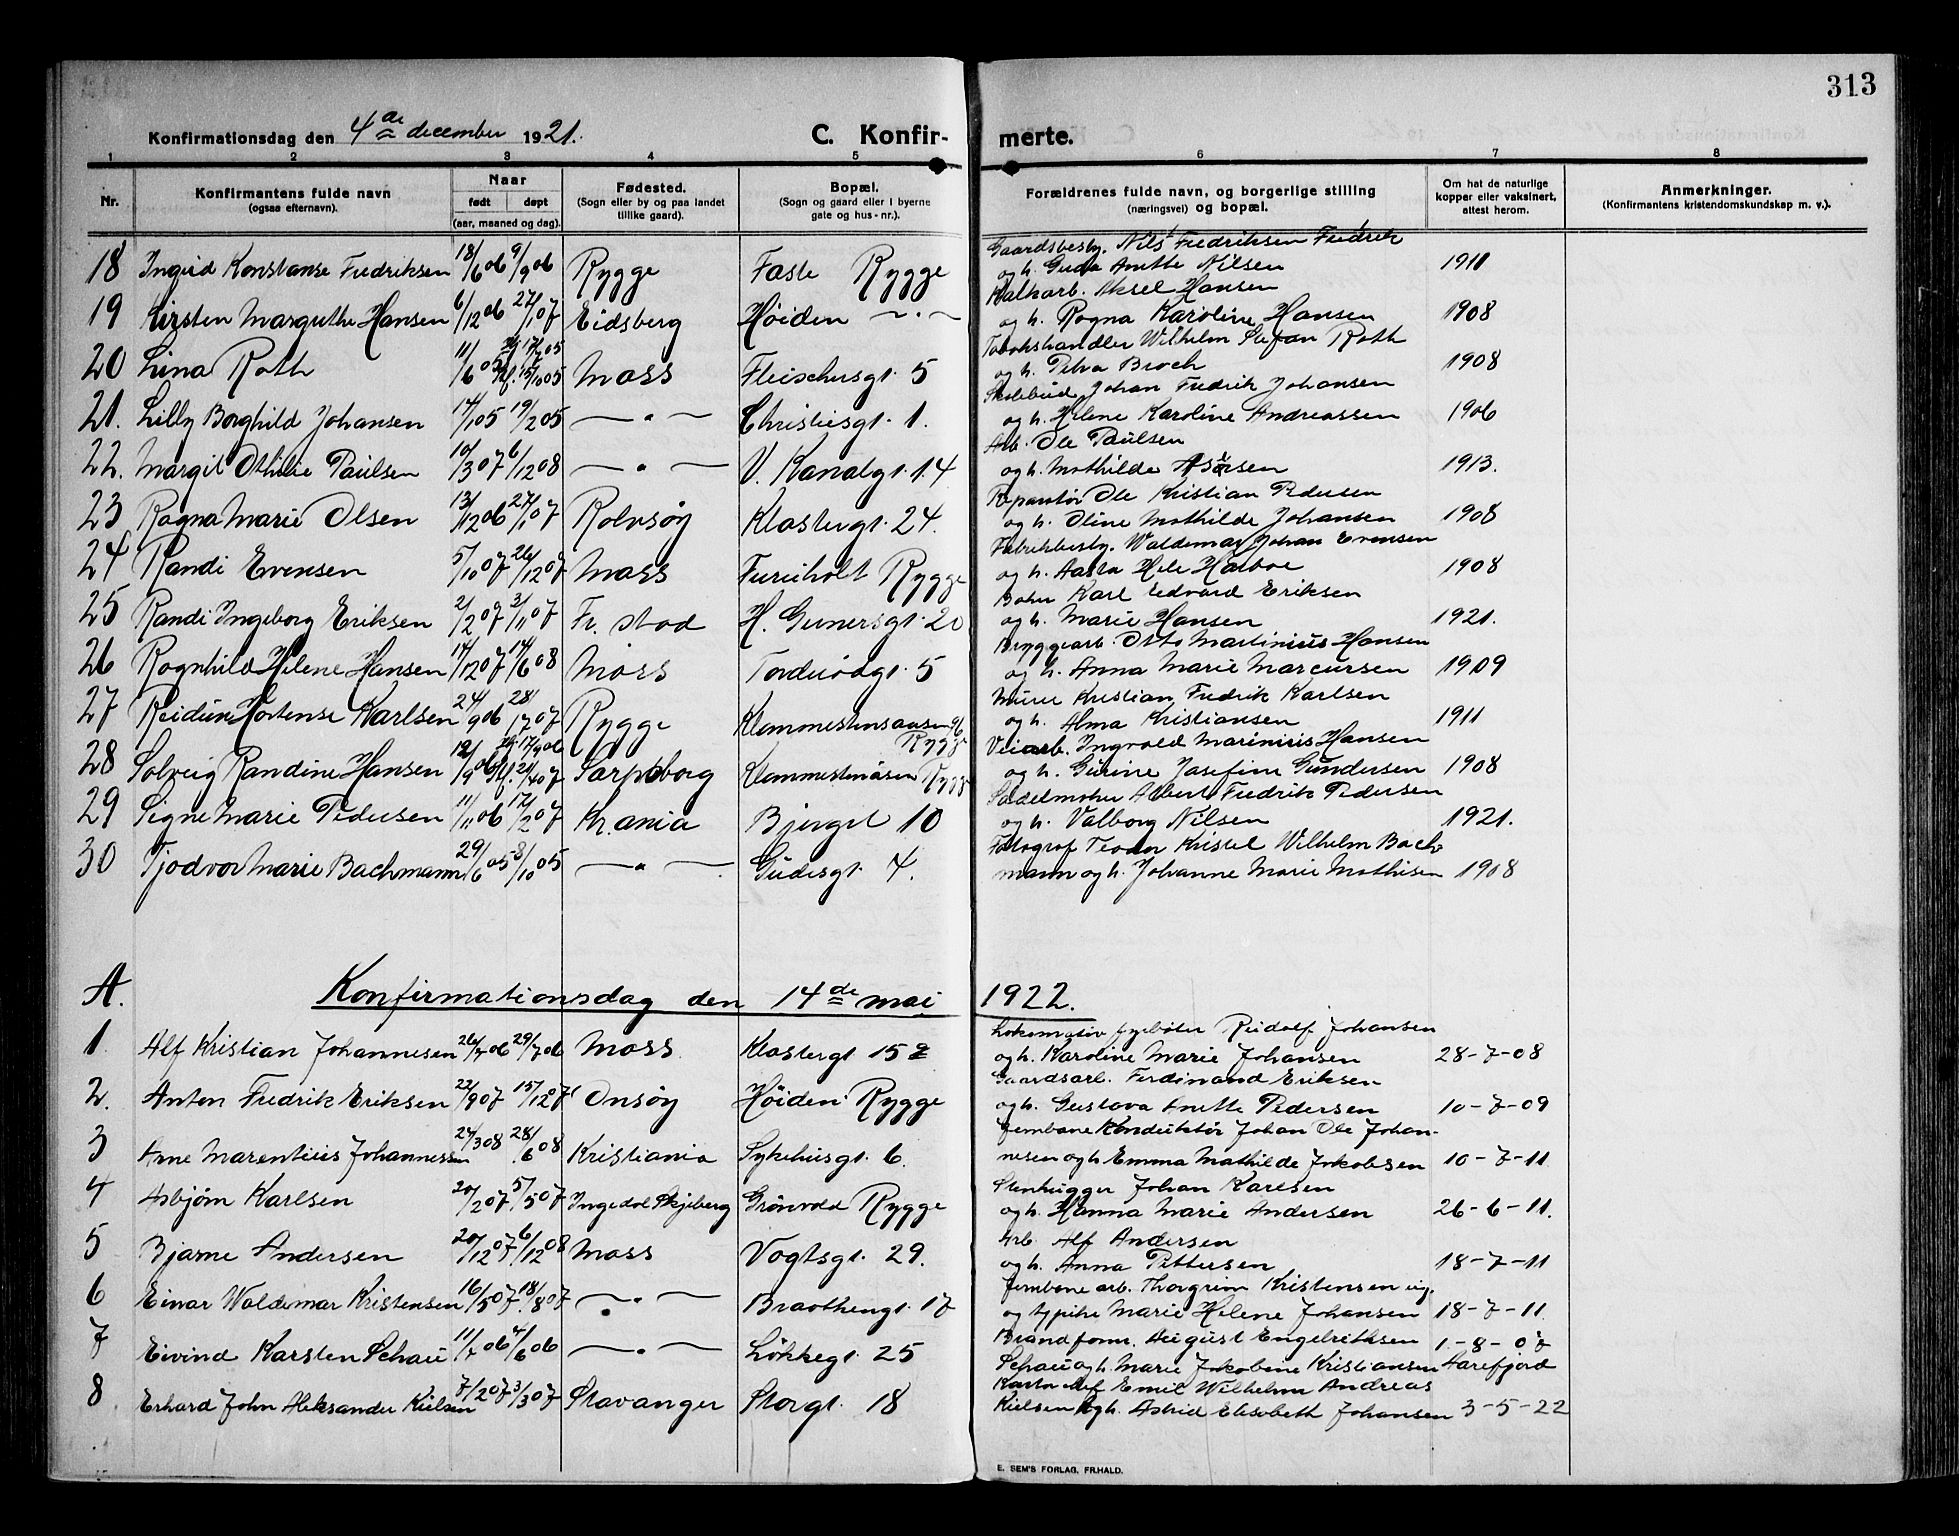 313
Konfirmationsdag den 4de december 1921. C. Konfir- merte.
1 2 3 4 5 6 7 8
Nr. Konfirmantens fulde navn (ogsaa efternavn). Naar født døpt (aar, maaned og dag). Fødested. (Sogn eller by og paa landet tillike gaard). Bopæl. (Sogn og gaard eller i byerne gate og hus-nr.). Forældrenes fulde navn, og borgerlige stilling (næringsvei) og bopæl. Om hat de naturlige kopper eller vaksinert, attest herom. Anmerkninger. (Konfirmantens kristendomskundskap m. v.).
Gaardsbesty. Nils Fredriksen Fredrik
18 Ingrid Konstanse Fredriksen 18/6 06 9/9 06 Rygge Faste Rygge og h. Anette Nilsen 1911
Kalkarb. Aksel Hansen
19 Kirsten Margrethe Hansen 6/12 06 27/1 07 Eidsberg Höiden –"– og h. Ragna Karoline Hansen 1908
Tobakshandler Wilhelm Stefan Roth
20 Lina Roth 11/6 05 15/10 05 Moss Fleischersgt. 5 og h. Petra Broch 1908
Skolebud Johan Fredrik Johansen
21. Lilly Borghild Johansen 14/1 05 19/2 05 –"– Christiesgt. 1. og h. Helene Karoline Andreassen 1906
Arb. Ole Paulsen
22. Margit Othilie Paulsen 10/3 07 6/12 08 –"– V. Kanalgt. 14 og h. Mathilde 1913.
Reparatör Ole Kristian Pedersen
23 Ragna Marie Olsen 13/12 06 27/1 07 Rolvsöy Klostergt. 24. og h. Oline Mathilde Johansen 1908
Fabrikbesty. Waldemar Johan Evensen
24 Randi Evensen 5/10 07 26/12 07 Moss Furuholt Rygge og h. Aasta 1908
Karl Edvard Eriksen
25 Randi Ingeborg Eriksen 2/2 07 3/11 07 Fr. stad H. Gernersgt. 20 og h. Marie Hansen 1921.
Bryggearb. Otto Martinius Hansen
26 Ragnhild Helene Hansen 17/12 07 14/6 08 Moss Tordenödgt. 5 og h. Anna Marie Marcussen 1909
Murer Kristian Fredrik Karlsen
27 Reidun Hortense Karlsen 24/9 06 28/1 07 Rygge Klommestensaasen 96 Rygge og h. Alma Kristiansen 1911
Veiarb. Ingvald Marinius Hansen
28 Solveig Randine Hansen 12/9 06 21/4 07 Sarpsborg Klommestenåsen Rygge og h. Gurine Josefine Gundersen 1908
Sadelmaker Albert Fredrik Pedersen
29 Signe Marie Pedersen 11/11 06 17/2 07 Kr.ania Bjerget 10 og h. Valborg Nilsen 1921.
Fotograf Teodor Kristel Wilhelm Bach
30 Tjodvor Marie Bachmann 29/6 05 8/10 05 –"– Gudesgt. 4. mann og h. Johanne Marie Mathisen 1908
A. Konfirmationsdag den 14de mai 1922.
Lokomotiv fyrböter Rudolf Johansen
1. Alf Kristian Johannesen 26/4 06 29/7 06 Moss Klostergt 15 og h. Karoline Marie Johansen 28-7-08
Gaardsarb. Ferdinand Eriksen
2. Anton Fredrik Eriksen 22/9 07 15/12 07 Onsöy Höiden Rygge og h. Gustava Anette Pedersen 10-7-09
Jernbane Konduktör Johan Ole Johan-
3 Arne Marentius Johannessen 24/3 08 28/6 08 Kristiania Sykehusgt. 6. nesen og h Emma Mathilde Jakobsen 10-7-11
Stenhugger Johan Karlsen
4 Asbjörn Karlsen 20/2 07 5/5 07 Ingedal Skjeberg Grönvold Rygge og h. Hanna Marie Andersen 26-6-11.
Arb. Alf Andersen
5 Bjarne Andersen 20/12 07 6/12 08 Moss Vogtsgt. 29. og h. Anna Pettersen 18-7-11
Jernbane arb. Thorgrim Kristensen ug.
6 Einar Waldemar Kristensen 16/5 07 18/8 07 –"– Braathengt. 17 og h. pike Marie Helene Johansen 18-7-11.
Brandform. August Engelriktsen 1-8-07
7 Eivind Karsten Schau 11/4 06 4/6 06 –"– Lökkegt. 25 Schau og h. Marie Jakobine Kristiansen Aarefjord
Emil Wilhelm Andreas
8 Erhard John Aleksander Kielsen 7/2 07 3/3 07 Stavanger Storgt. 18 Kielsen og h. Astrid Elisabeth Johansen 3-5-22
E. SEM'S FORLAG, FR.HALD.